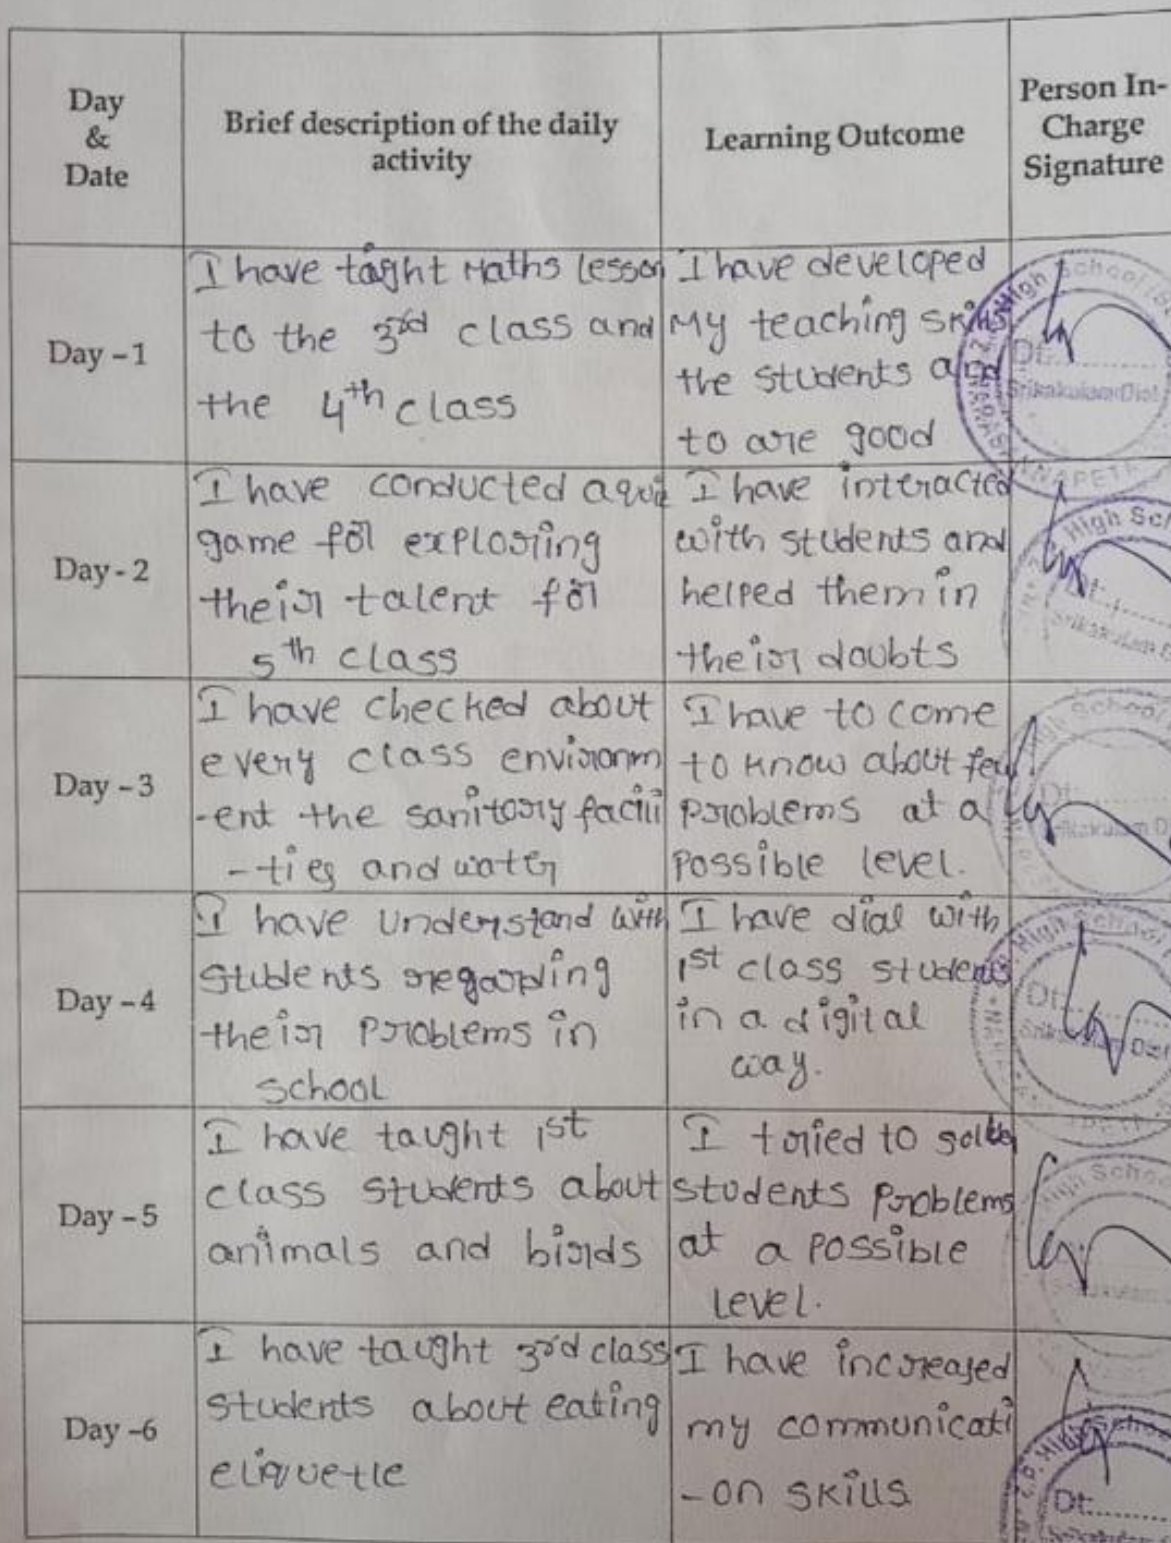 Day
&
Date
Brief description of the daily
activity
Learning Outcome
Person In-
Charge
Signature
Day - 1
I have taght Maths lesson
to the 3rd class and
the 4th class
I have developed
My teaching skills
the students and
to are good
Day - 2
I have conducted a quiz
game for explosring
their talent for
5th class
I have interacted
with students and
helped them in
their doubts
Day - 3
I have checked about
every class environm
-ent the sanitory facili
-ties and water
I have to come
to know about few
problems at a
possible level.
Day - 4
I have understand with
students regarding
their problems in
school
I have dial with
1st class students
in a digital
way.
Day - 5
I have taught 1st
class students about
animals and birds
I tried to
students problems
at a possible
level.
Day -6
I have taught 3rd class
students about eating
I have increased
my communicati
-on skills
High School
Dt:
Srikakulam Dist
High Sc
Dt:
Srikakulam D
High School
Dt:
Srikakulam D
High School
Dt:
Srikakulam Dist
High Schoo
Z.P. High Schoo
Dt: